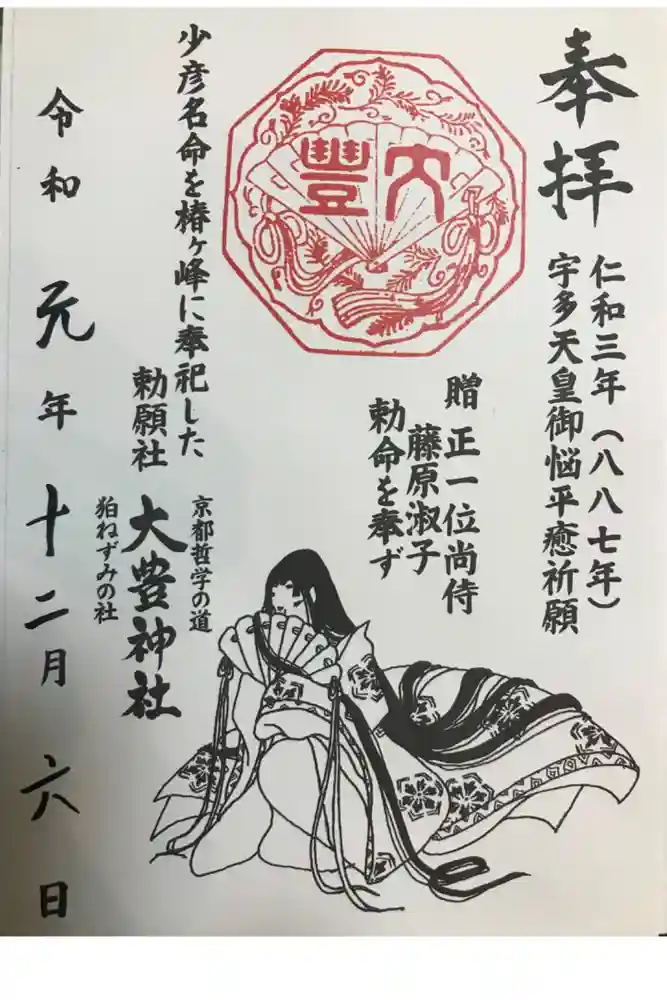 奉拝
仁和三年（八八七年）
宇多天皇御悩平癒祈願
贈 正一位尚侍
藤原淑子
勅命を奉ず
大豐
少彦名命を椿ヶ峰に奉祀した
勅願社
京都哲学の道
大豊神社
狛ねずみの社
令和元年十二月六日